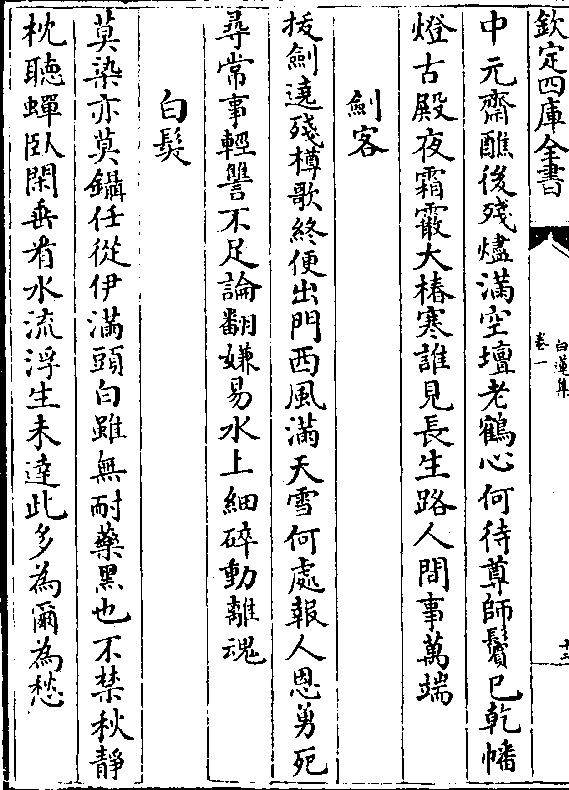 欽定四庫全書
白蓮集
卷一
十二
中元齋醮後殘燼滿空壇老鶴心何待尊師鬢已乾幡
燈古殿夜霜霰大椿寒誰見長生路人間事萬端
劍客
拔劍遶殘樽歌終便出門西風滿天雪何處報人恩勇死
尋常事輕讐不足論翻嫌易水上細碎動離魂
白髮
莫染亦莫鑷任從伊滿頭白雖無耐藥黑也不禁秋靜
枕聽蟬臥閑垂看水流浮生未達此多為爾為愁